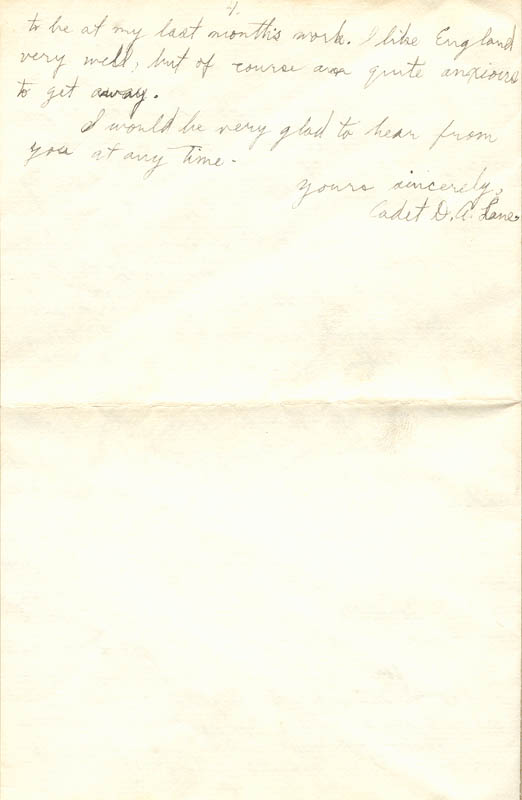 4.
to be at my last month's work. I like England
very well, but of course am quite anxious
to get away.
I would be very glad to hear from
you at any time.
yours sincerely,
Cadet D. A. Lane.